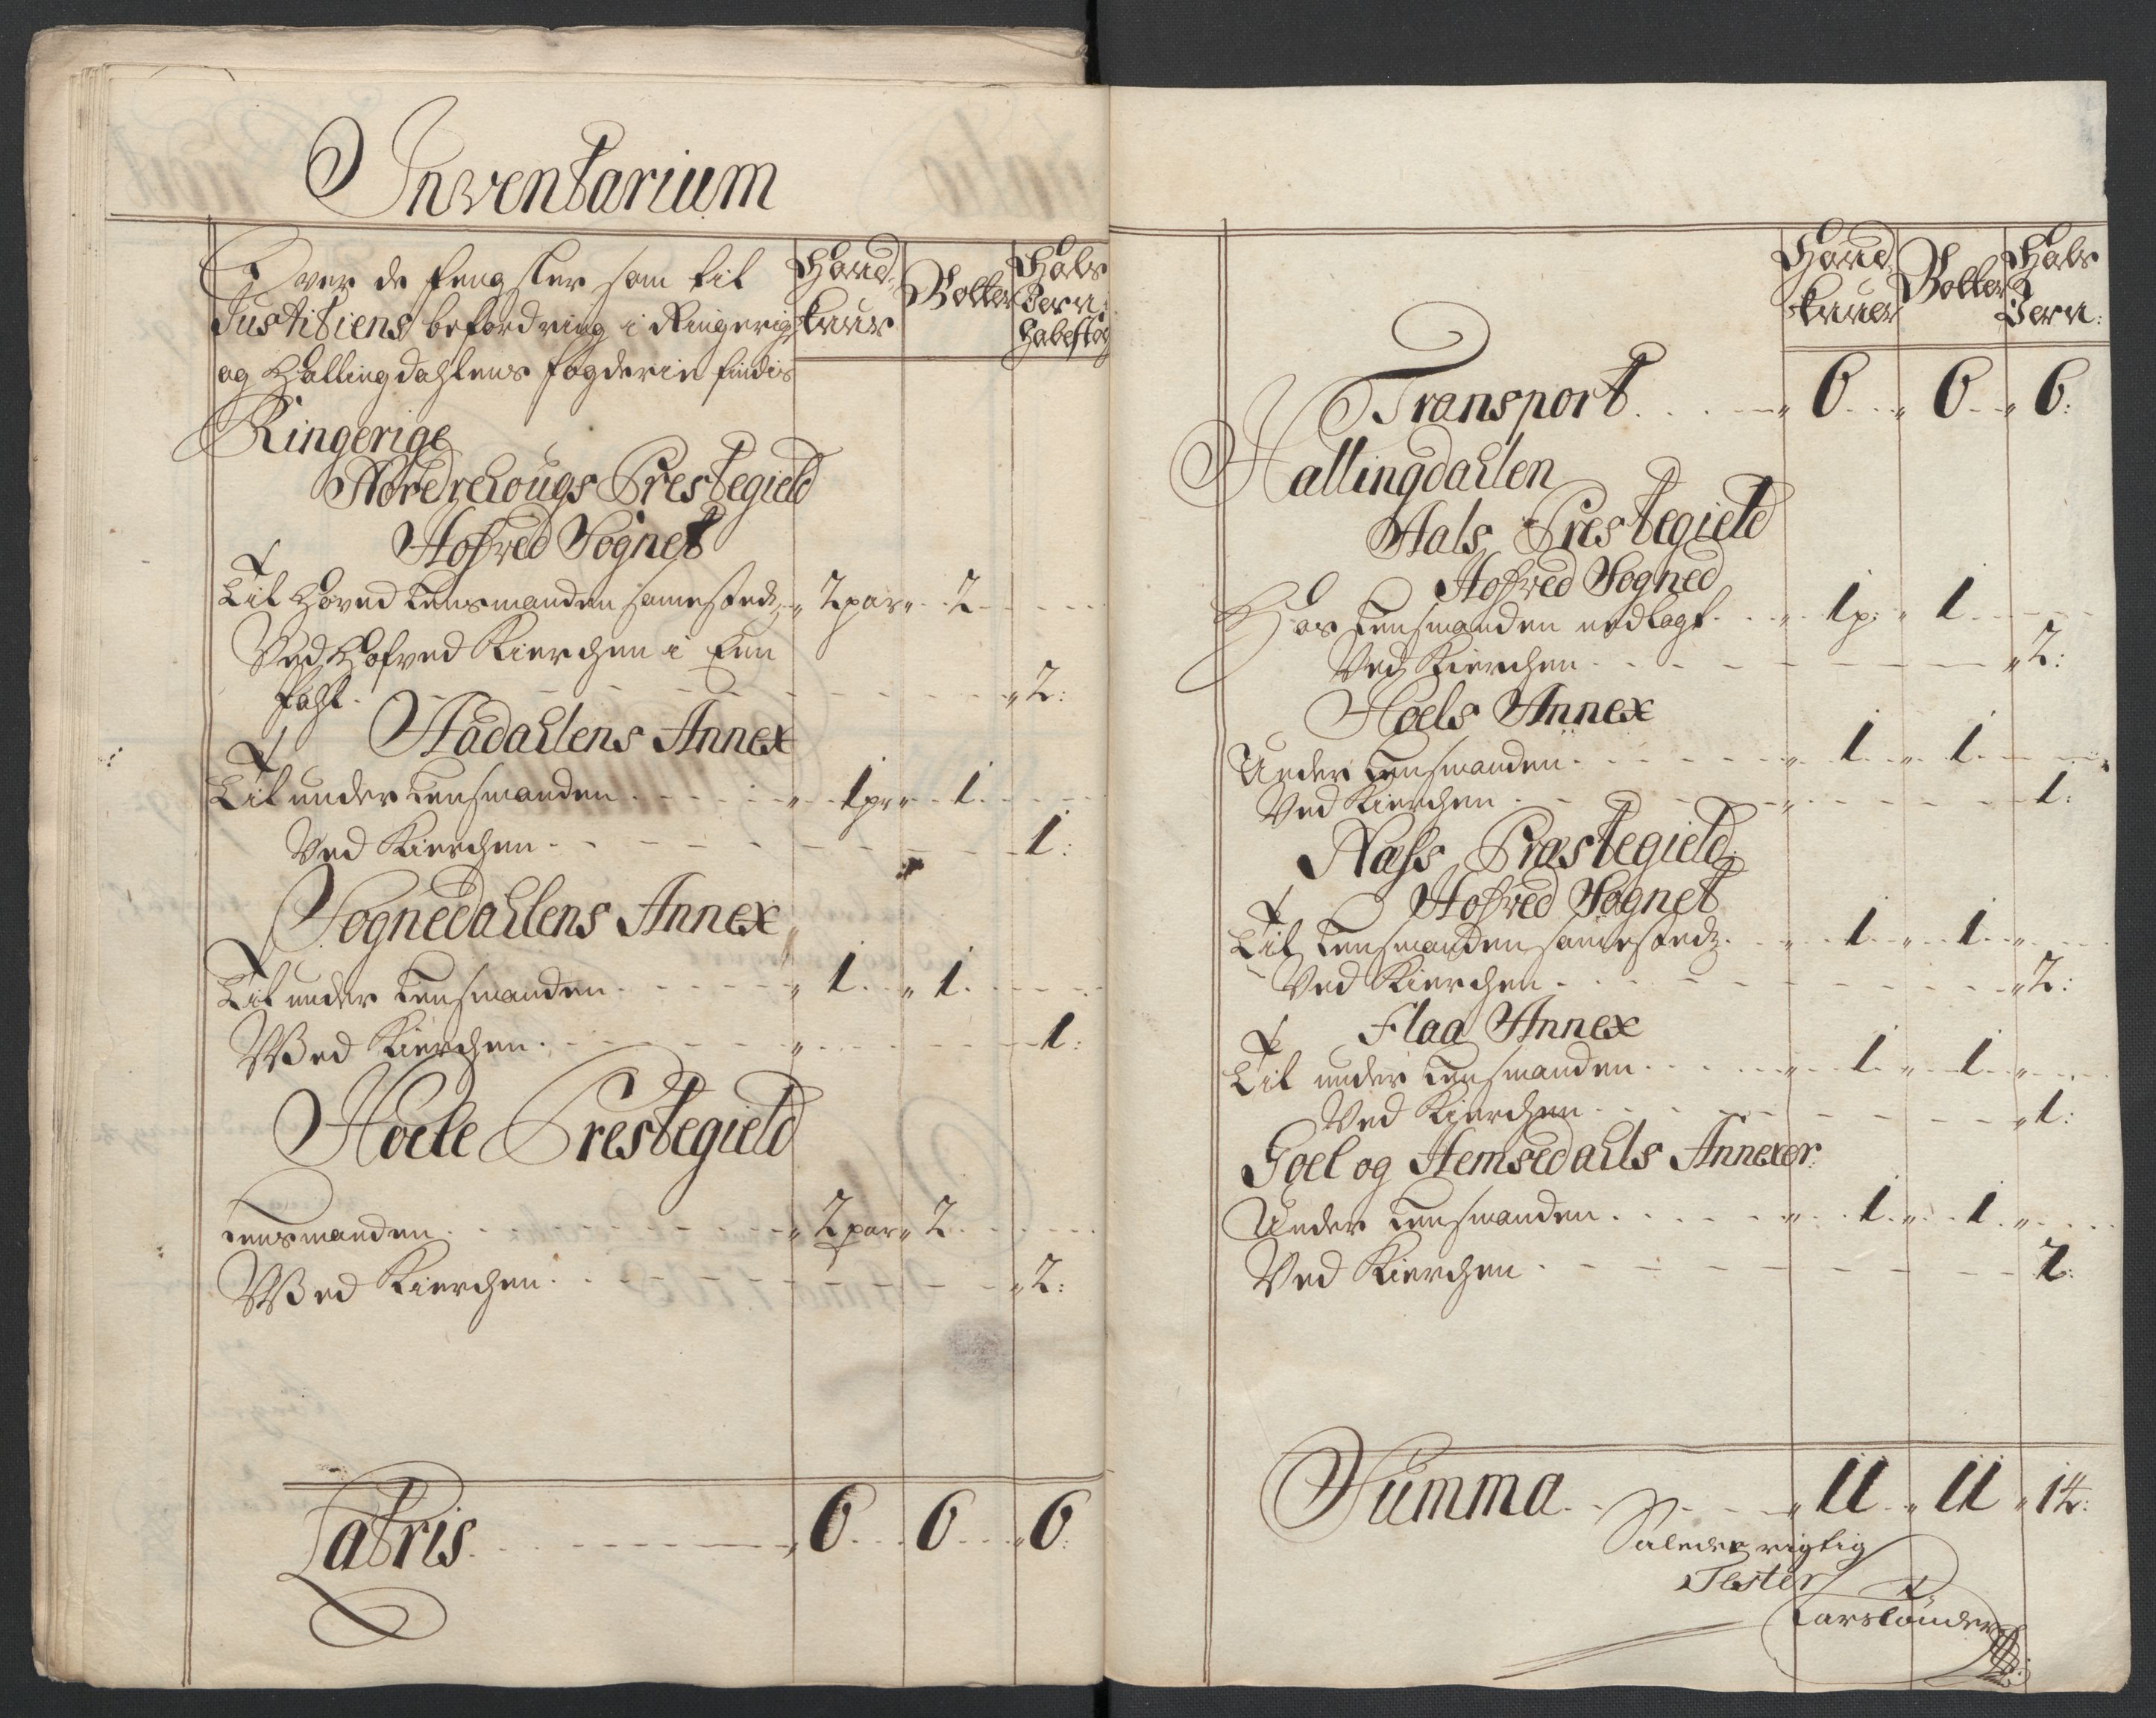 Inventarium
Over de fengsler som til
Justitiens befordring i Ringerig
og Hallingdahlens fogderie findis
Haand Kuur
Bolter
Hals Jern
Ringerige
Nordrehougs Prestegield
Hofved Sognet
Til Hoved Lensmanden samestedz " 2 par " 2
Ved Hofved Kierchen i Een
fahl " 2:
Aadahlens Annex
Til under Lensmanden " 1 pr " 1
Ved Kierchen 1:
Sognedahlens Annex
Til under Lensmanden " 1 " 1
Wed Kierchen " 1:
Hoele Prestegield
Lensmanden " 2 par " 2
Wed Kierchen " 2:
Latris " 6 6 " 6:
Haand Kuuer
Bolter
Hals Jern:
Transport " 6 " 6 " 6:
Hallingdahlen
Aals Prestegield
Hofved Sogned
Hos Lensmanden nedlagt " 1 p: " 1
Ved Kierchen " 2:
Hoels Annex
Under Lensmanden " 1 " 1
Ved Kierchen " 1:
Næss Præstegield
Hofved Sognet
Til Lensmanden samestedz " 1 " 1 "
Ved Kierchen " 2:
Flaa Annex
Til under Lensmanden " 1 " 1 "
Ved Kierchen " 1:
Goel og Hemsedahls Annexer:
Under Lensmanden " 1 " 1 "
Ved Kierchen 2:
Summa " 11 " 11 " 14:
Saledes rigtig
Tester